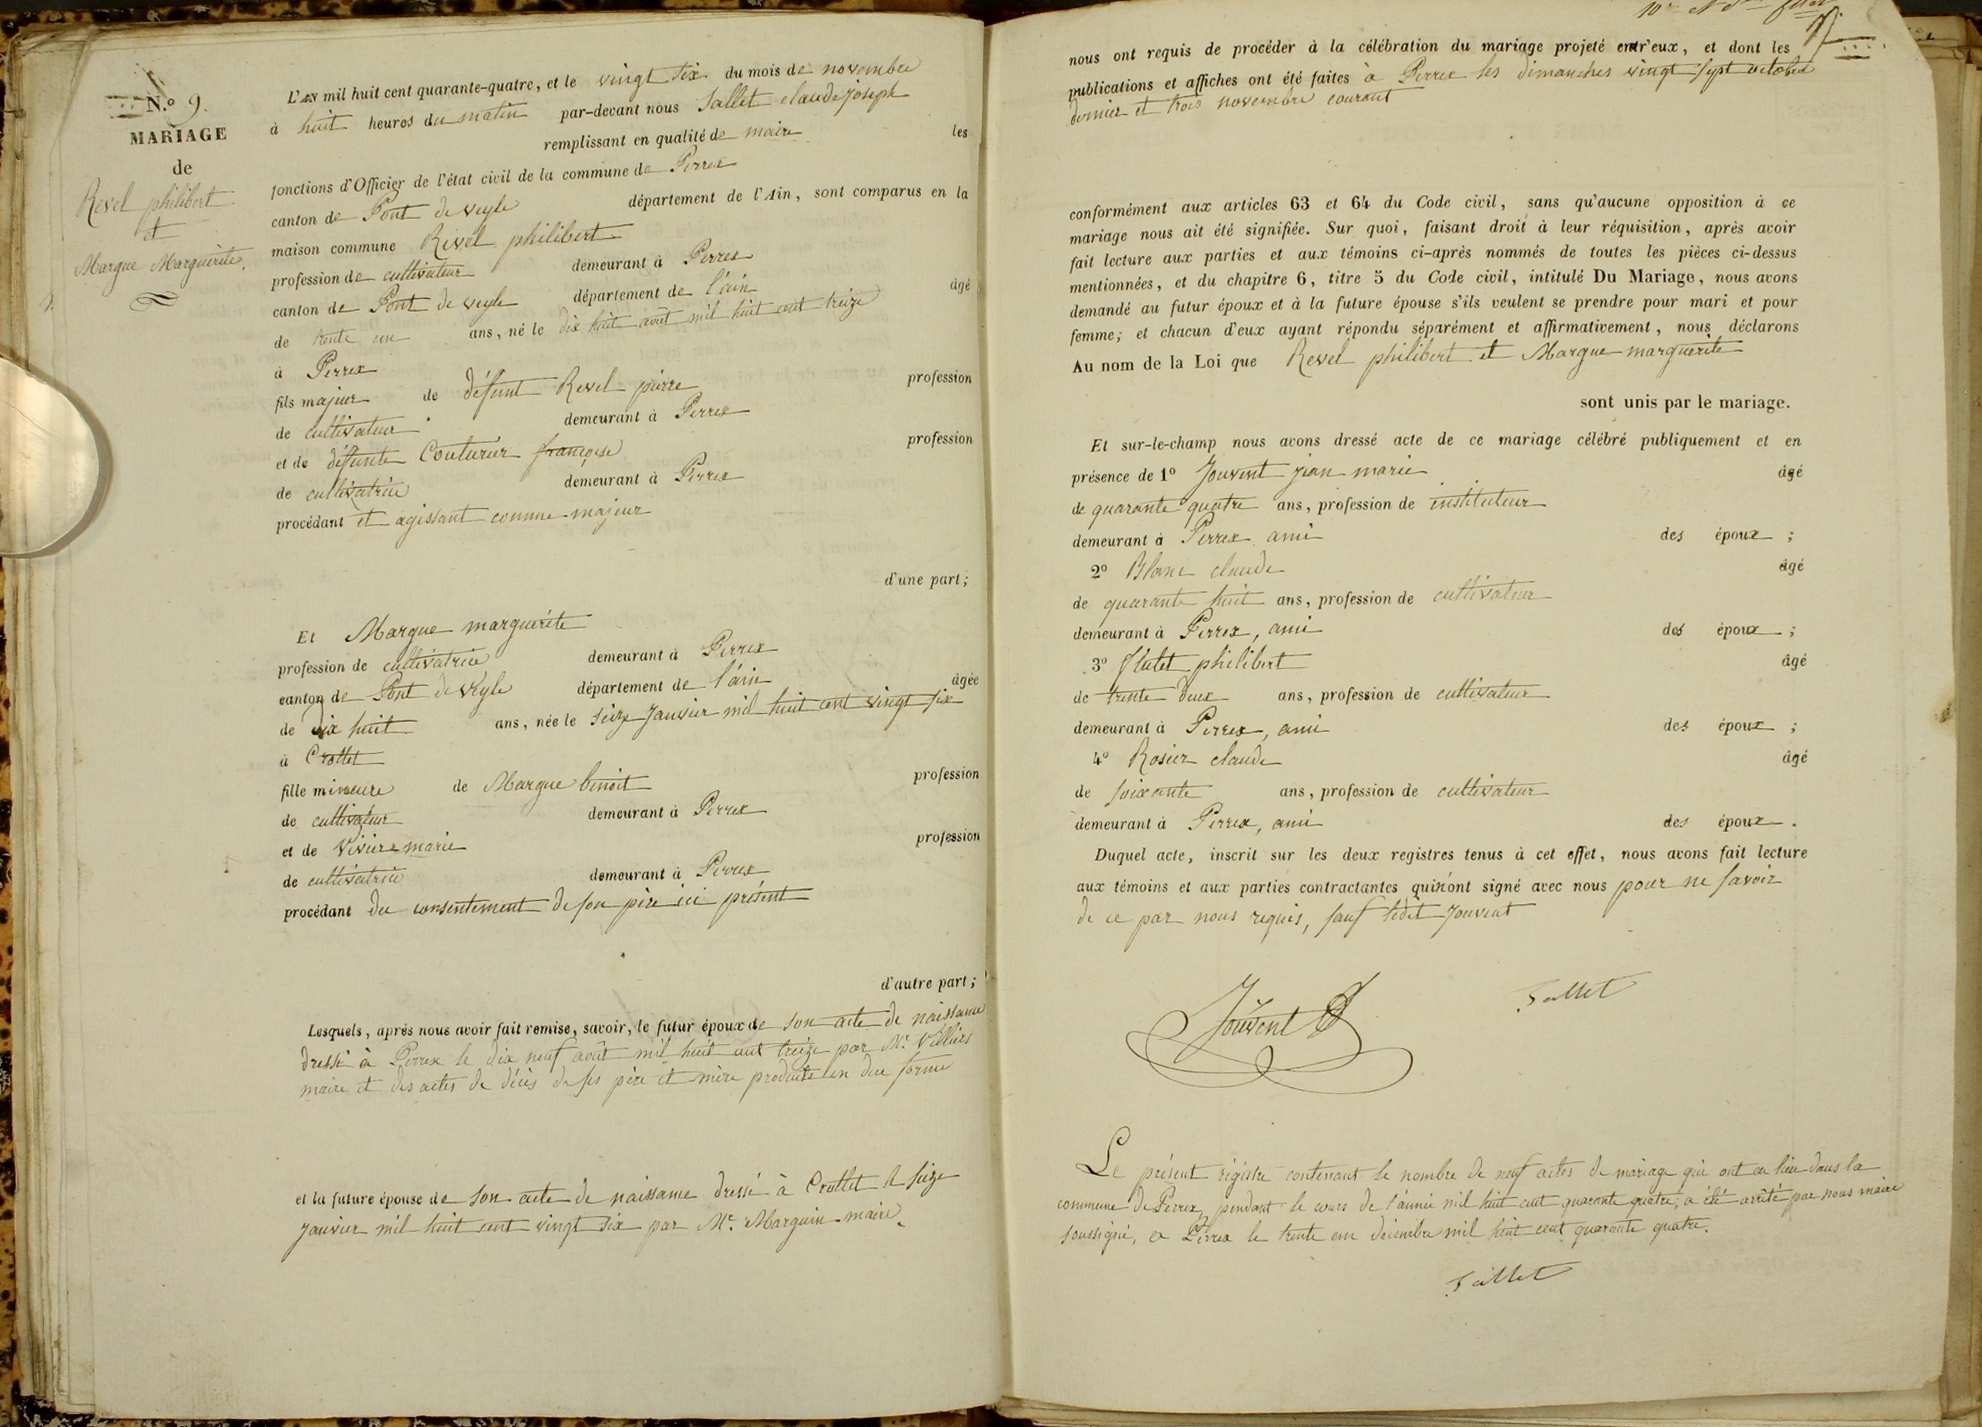 N.° 9.
MARIAGE
de
Revel philibert
et
Margue Marguerite.
L'an mil huit cent quarante-quatre, et le vingt six du mois de novembre
à huit heures du matin par-devant nous Sallet claude joseph
remplissant en qualité de maire les
fonctions d'Officier de l'état civil de la commune de Perrex
canton de Pont de veyle département de l'Ain, sont comparus en la
maison commune Revel philibert
profession de cultivateur demeurant à Perrex
canton de Pont de veyle département de l'ain âgé
de trente un ans, né le dix huit août mil huit cent treize
à Perrex
fils majeur de défunt Revel pierre profession
de cultivateur demeurant à Perrex
et de défunte Couturier françoise profession
de cultivatrice demeurant à Perrex
procédant et agissant comme majeur
d'une part;
Et Margue marguerite
profession de cultivatrice demeurant à Perrex
canton de Pont de veyle département de l'ain âgée
de dix huit ans, née le seize janvier mil huit cent vingt six
à Crottet
fille mineure de Margue benoit profession
de cultivateur demeurant à Perrex
et de Vivier marie profession
de cultivatrice demeurant à Perrex
procédant du consentement de son père ici présent
d'autre part;
Lesquels, après nous avoir fait remise, savoir, le futur époux de son acte de naissance
dressé à Perrex le dix neuf août mil huit cent treize par Mr.
maire et des actes de décès de ses père et mère produits en due forme
et la future épouse de son acte de naissance dressé à Crottet le seize
janvier mil huit cent vingt six par Mr. Marguin maire.
nous ont requis de procéder à la célébration du mariage projeté entr'eux, et dont les
publications et affiches ont été faites à Perrex les dimanches vingt sept octobre
dernier et trois novembre courant
conformément aux articles 63 et 64 du Code civil, sans qu'aucune opposition à ce
mariage nous ait été signifiée. Sur quoi, faisant droit à leur réquisition, après avoir
fait lecture aux parties et aux témoins ci-après nommés de toutes les pièces ci-dessus
mentionnées, et du chapitre 6, titre 5 du Code civil, intitulé Du Mariage, nous avons
demandé au futur époux et à la future épouse s'ils veulent se prendre pour mari et pour
femme; et chacun d'eux ayant répondu séparément et affirmativement, nous déclarons
Au nom de la Loi que Revel philibert et Margue marguerite
sont unis par le mariage.
Et sur-le-champ nous avons dressé acte de ce mariage célébré publiquement et en
présence de 1° Jouvent jean marie âgé
de quarante quatre ans, profession de instituteur
demeurant à Perrex ami des époux ;
2° Blanc claude âgé
de quarante huit ans, profession de cultivateur
demeurant à Perrex, ami des époux ;
3° philibert âgé
de trente deux ans, profession de cultivateur
demeurant à Perrex, ami des époux ;
4° Rosier claude âgé
de soixante ans, profession de cultivateur
demeurant à Perrex, ami des époux .
Duquel acte, inscrit sur les deux registres tenus à cet effet, nous avons fait lecture
aux témoins et aux parties contractantes qui n'ont signé avec nous pour ne savoir
de ce par nous requis, sauf ledit Jouvent
Jouvent
Sallet
Le présent régistre contenant le nombre de neuf actes de mariage qui ont eu lieu dans la
commune de Perrex pendant le cours de l'année mil huit cent quarante quatre, a été arrêté par nous maire
soussigné, à Perrex le trente un décembre mil huit cent quarante quatre.
Sallet